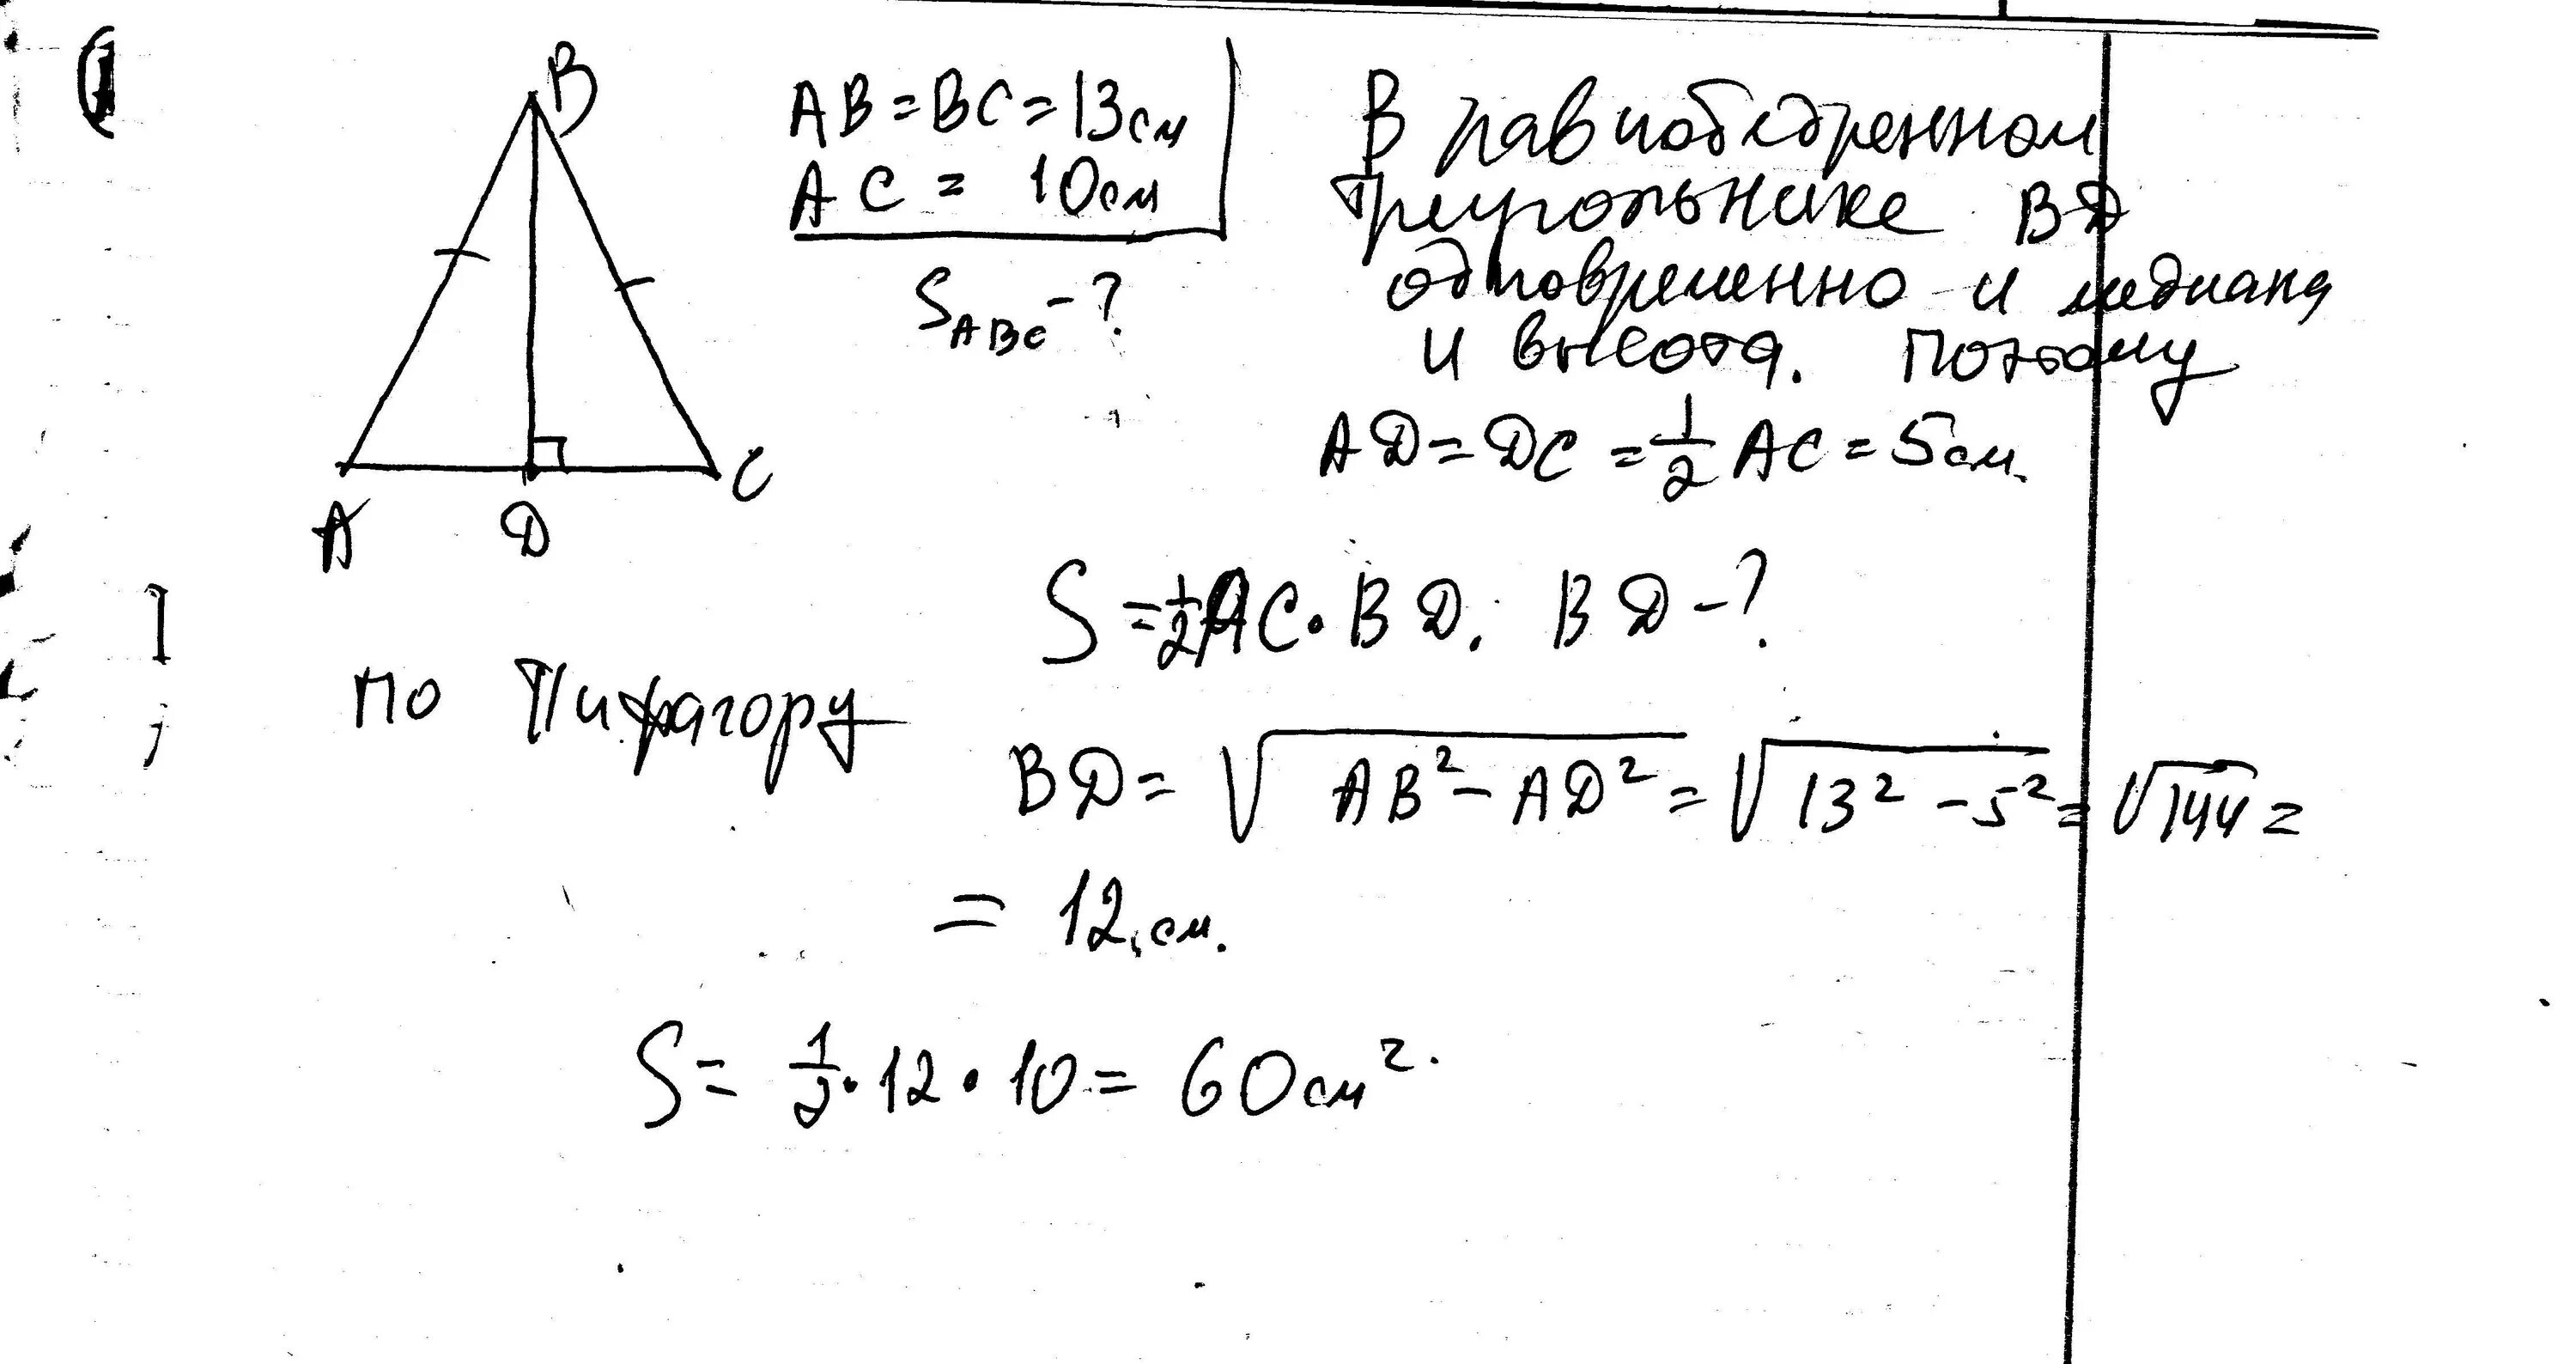 1
B
AB = BC = 13см
AC = 10см
S_ABC - ?
A
D
C
В равнобедренном
треугольнике BD
одновременно и медиана
и высота. Поэтому
AD = DC = 1/2 AC = 5см.
S = 1/2 AC • BD. BD - ?
По Пифагору
BD = √(AB² - AD²) = √(13² - 5²) = √144 =
= 12 см.
S = 1/2 • 12 • 10 = 60 см².